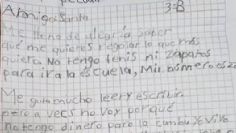 3-B
Amigo Santa
Me llena de alegria saber
que me quieres regalar lo que más
quiero No tengo tenis ni zapatos
para ir a la escuela, Mi número es 22
Me gusta mucho leer y escribir
pero a veces no voy porque
no tengo dinero para la combi y vivo